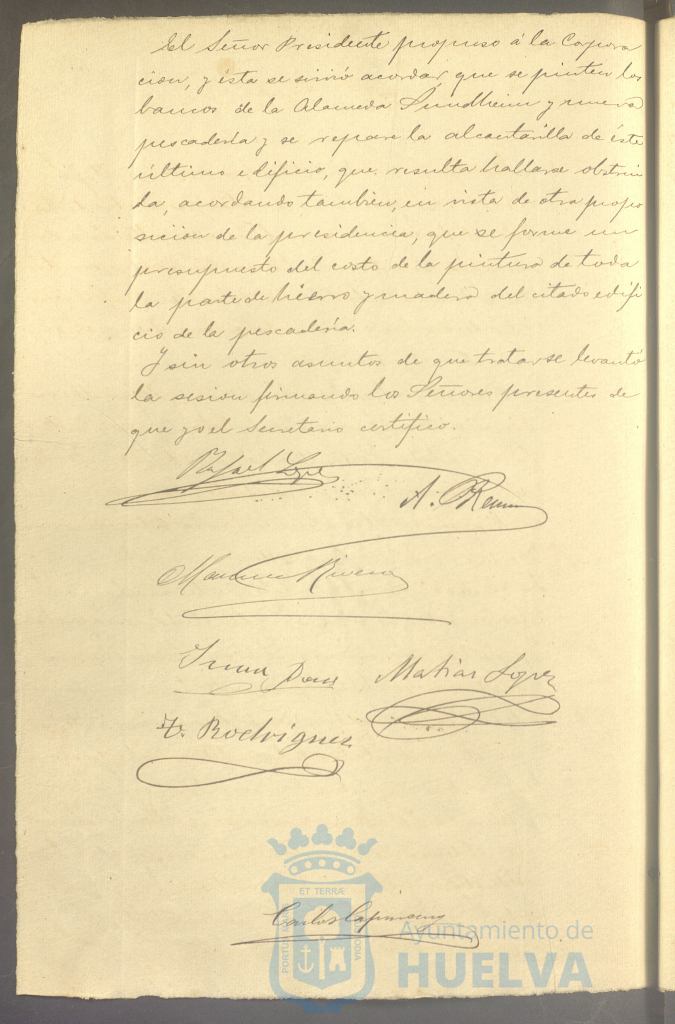 El Señor Presidente propuso á la Corpora
cion, y ésta se sirvió acordar que se pinten los
bancos de la Alameda Sundheim y nueva
pescadería y se repare la alcantarilla de éste
último edificio, que resulta hallarse obstrui
da, acordando tambien, en vista de otra propo
sicion de la presidencia, que se forme un
presupuesto del costo de la pintura de toda
la parte de hierro y madera del citado edifi
cio de la pescadería.
Y sin otros asuntos de que tratar se levantó
la sesion firmando los Señores presentes de
que yo el Secretario certifico.
Rafael Lopez
A.
Rivera
Juan
Matias Lopez
Rodriguez
ET TERRÆ
Carlos
Ayuntamiento de
HUELVA